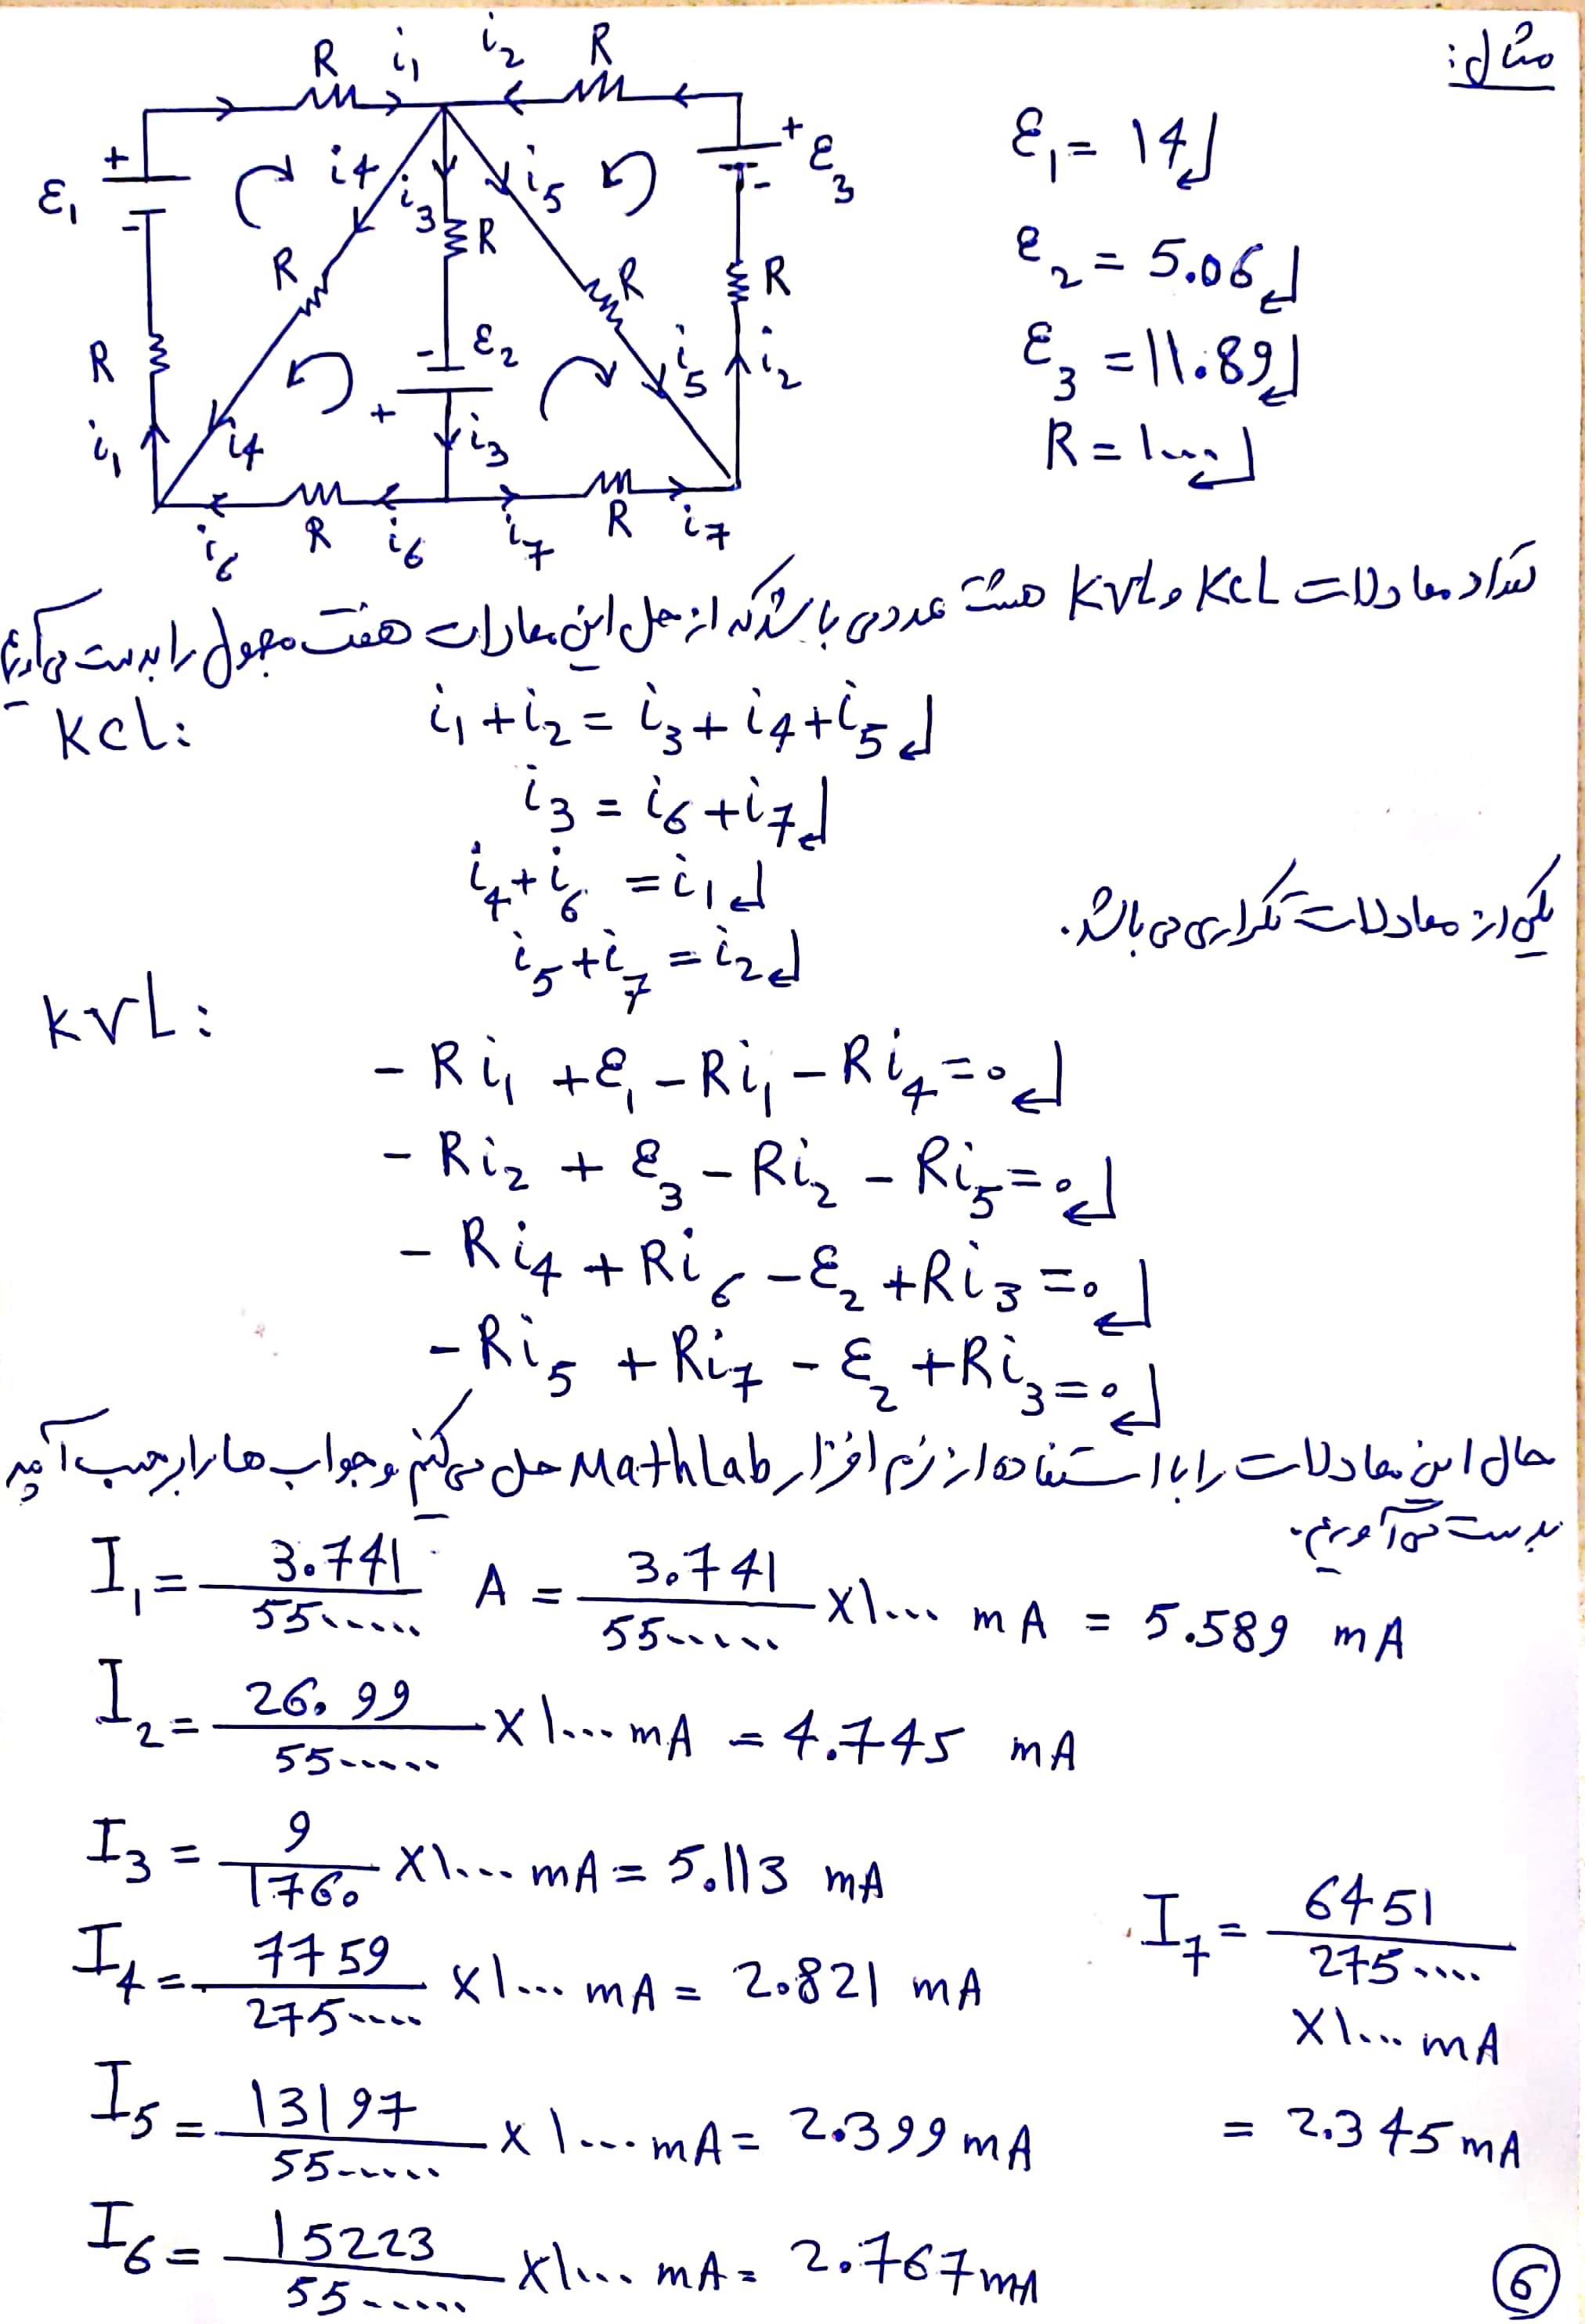 مثال:
R i₁ i₂ R
+ ε₁ - i₄ i₃ i₅ + ε₃ -
R R R R
R - ε₂ + i₅ i₂
i₁ i₄ i₃
i₆ R i₆ i₇ R i₇
ε₁ = 14
ε₂ = 5.06
ε₃ = 11.89
R = 1000
تعداد معادلات KCL و KVL هشت عددمی باشد که از حل این معادلات هفت مجهول را بدست می آوریم
KCL:
i₁ + i₂ = i₃ + i₄ + i₅
i₃ = i₆ + i₇
i₄ + i₆ = i₁
یکی از معادلات تکراری می باشد.
i₅ + i₇ = i₂
KVL:
- Ri₁ + ε₁ - Ri₁ - Ri₄ = 0
- Ri₂ + ε₃ - Ri₂ - Ri₅ = 0
- Ri₄ + Ri₆ - ε₂ + Ri₃ = 0
- Ri₅ + Ri₇ - ε₂ + Ri₃ = 0
حال این معادلات را با استفاده از نرم افزار MathLab حل می کنیم و جواب ها را برحسب آمپر
بدست می آوریم.
I₁ = 30741/5500000 A = 30741/5500000 ×1000 mA = 5.589 mA
I₂ = 26099/5500000 ×1000 mA = 4.745 mA
I₃ = 9/1760 ×1000 mA = 5.113 mA
I₄ = 7759/2750000 ×1000 mA = 2.821 mA
I₅ = 13197/5500000 ×1000 mA = 2.399 mA
I₆ = 15223/5500000 ×1000 mA = 2.767 mA
I₇ = 6451/2750000
×1000 mA
= 2.345 mA
6